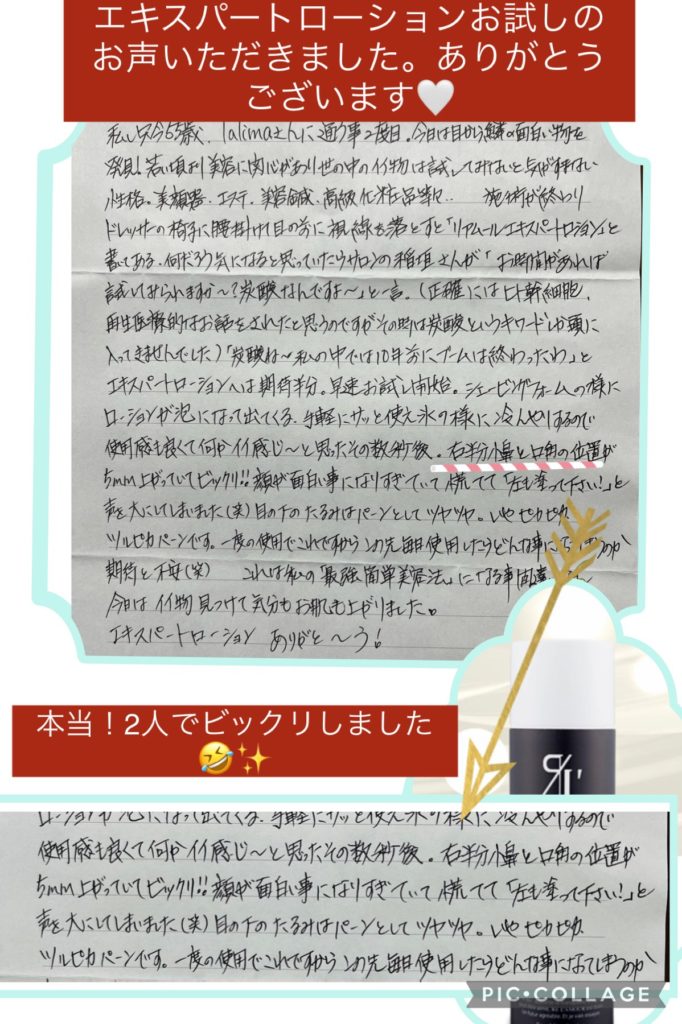 エキスパートローションお試しの
お声いただきました。ありがとう
ございます🤍
私し只今65歳、lalimaさんに通う事2度目。今日は目から鱗の面白い物を
発見!若い頃より美容に関心があり世の中のイイ物は試してみないと気がすまない
性格。美顔器、エステ、美容鍼、高級化粧品等々‥ 施術が終わり
ドレッサーの椅子に腰掛け目の前に視線を落とすと「リアムールエキスパートローション」と
書いてある。何だろう気になると思っていたらサロンの稲垣さんが「お時間があれば
試してみられますか〜?炭酸なんですよ〜」と一言。(正確にはヒト幹細胞、
再生医療的なお話をされたと思うのですがその時は炭酸というキーワードしか頭に
入ってきませんでした)「炭酸ね〜私の中では10年前にブームは終わったわ」と
エキスパートローションへは期待半分。早速お試し開始。シェービングフォームの様に
ローションが泡になって出てくる。手軽にサッと使え氷の様に冷んやりするので
使用感も良くて何かイイ感じ〜と思ったその数秒後。右半分小鼻と口角の位置が
5mm上がっていてビックリ!!顔が面白い事になりすぎていて慌てて「左も塗って下さい!」と
声を大にしてしまいました(笑)目の下のたるみはパーンとしてツヤツヤ。いやピカピカ
ツルピカパーンです。一度の使用でこれですからこの先毎日使用したらどんな事に
期待と不安(笑) これは私の「最強簡単美容法」になる事間違
今日はイイ物見つけて気分もお肌も上がりました。
エキスパートローション ありがと〜う!
本当!2人でビックリしました
🤣✨
ローションが泡になって出てくる。手軽にサッと使え氷の様に冷んやりするので
使用感も良くて何かイイ感じ〜と思ったその数秒後。右半分小鼻と口角の位置が
5mm上がっていてビックリ!!顔が面白い事になりすぎていて慌てて「左も塗って下さい!」と
声を大にしてしまいました(笑)目の下のたるみはパーンとしてツヤツヤ。いやピカピカ
ツルピカパーンです。一度の使用でこれですからこの先毎日使用したらどんな事になってしまうのか
PIC•COLLAGE